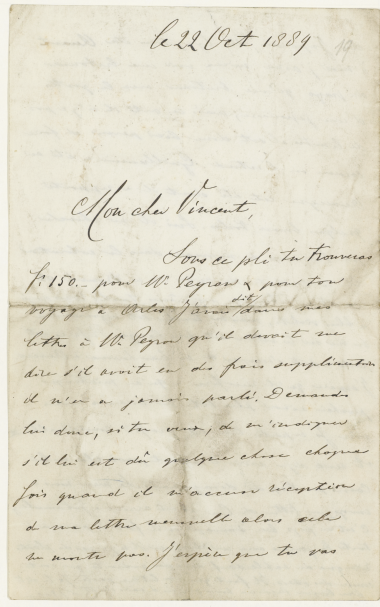 le 22 Oct 1889
19
Mon cher Vincent,
Sous ce pli tu trouveras
fr. 150.- pour Mr. Peyron & pour ton
voyage à Arles. J'avais dit dans mes
lettre à Mr. Peyron qu'il devait me
dire s'il avait eu des frais supplémentaires
il n'en a jamais parlé. Demande
lui donc, si tu veux, de m'indiquer
s'il lui est dû quelque chose chaque
fois quand il m'accuse réception
de ma lettre mensuelle alors cela
ne monte pas. J'espère que tu vas